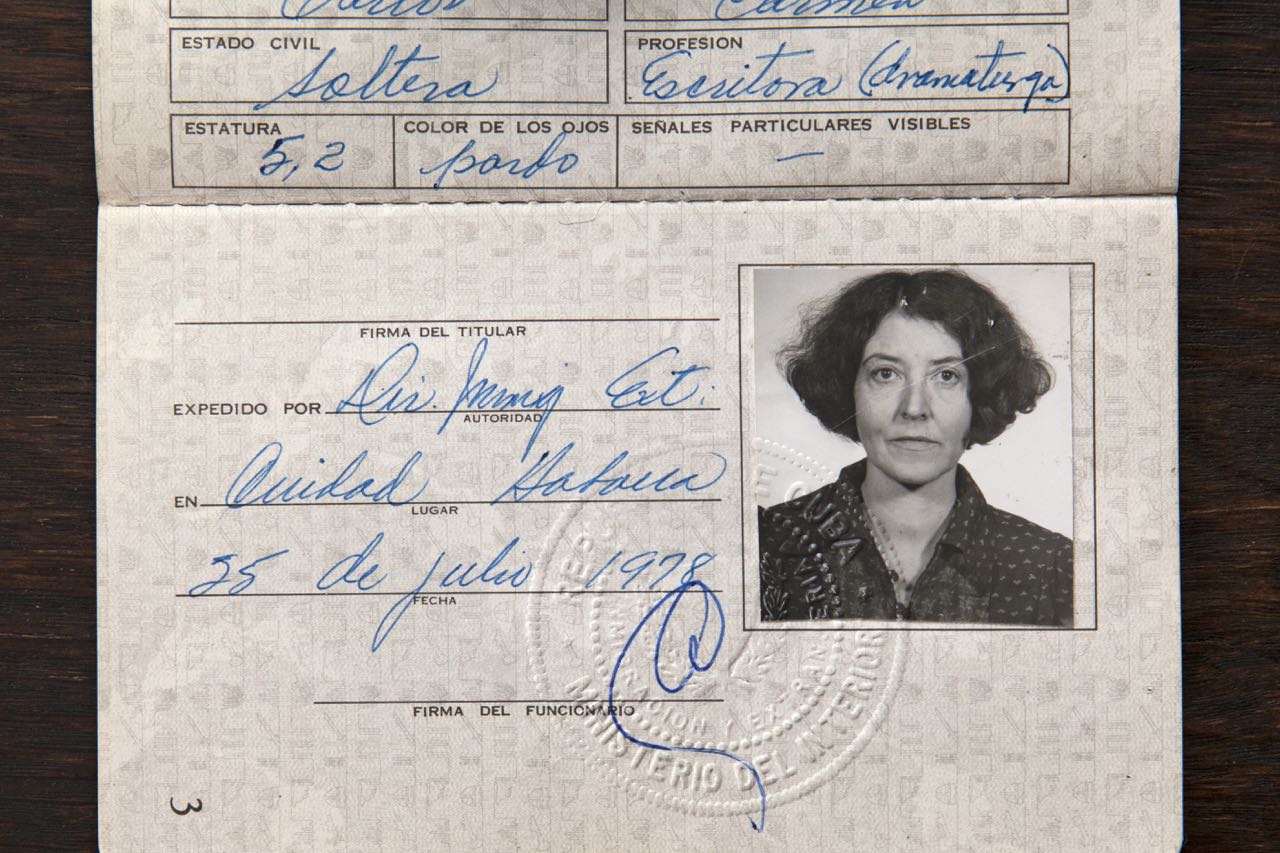 Carlos Carmen
ESTADO CIVIL PROFESION
Soltera Escritora (dramaturga)
ESTATURA COLOR DE LOS OJOS SEÑALES PARTICULARES VISIBLES
5,2 pardo —
FIRMA DEL TITULAR
EXPEDIDO POR Dir. Inmig Ext.
AUTORIDAD
EN Ciudad Habana
LUGAR
25 de julio 1978
FECHA
FIRMA DEL FUNCIONARIO
REP CUBA
INMIGRACION Y EXTRANJERIA
MINISTERIO DEL INTERIOR
3